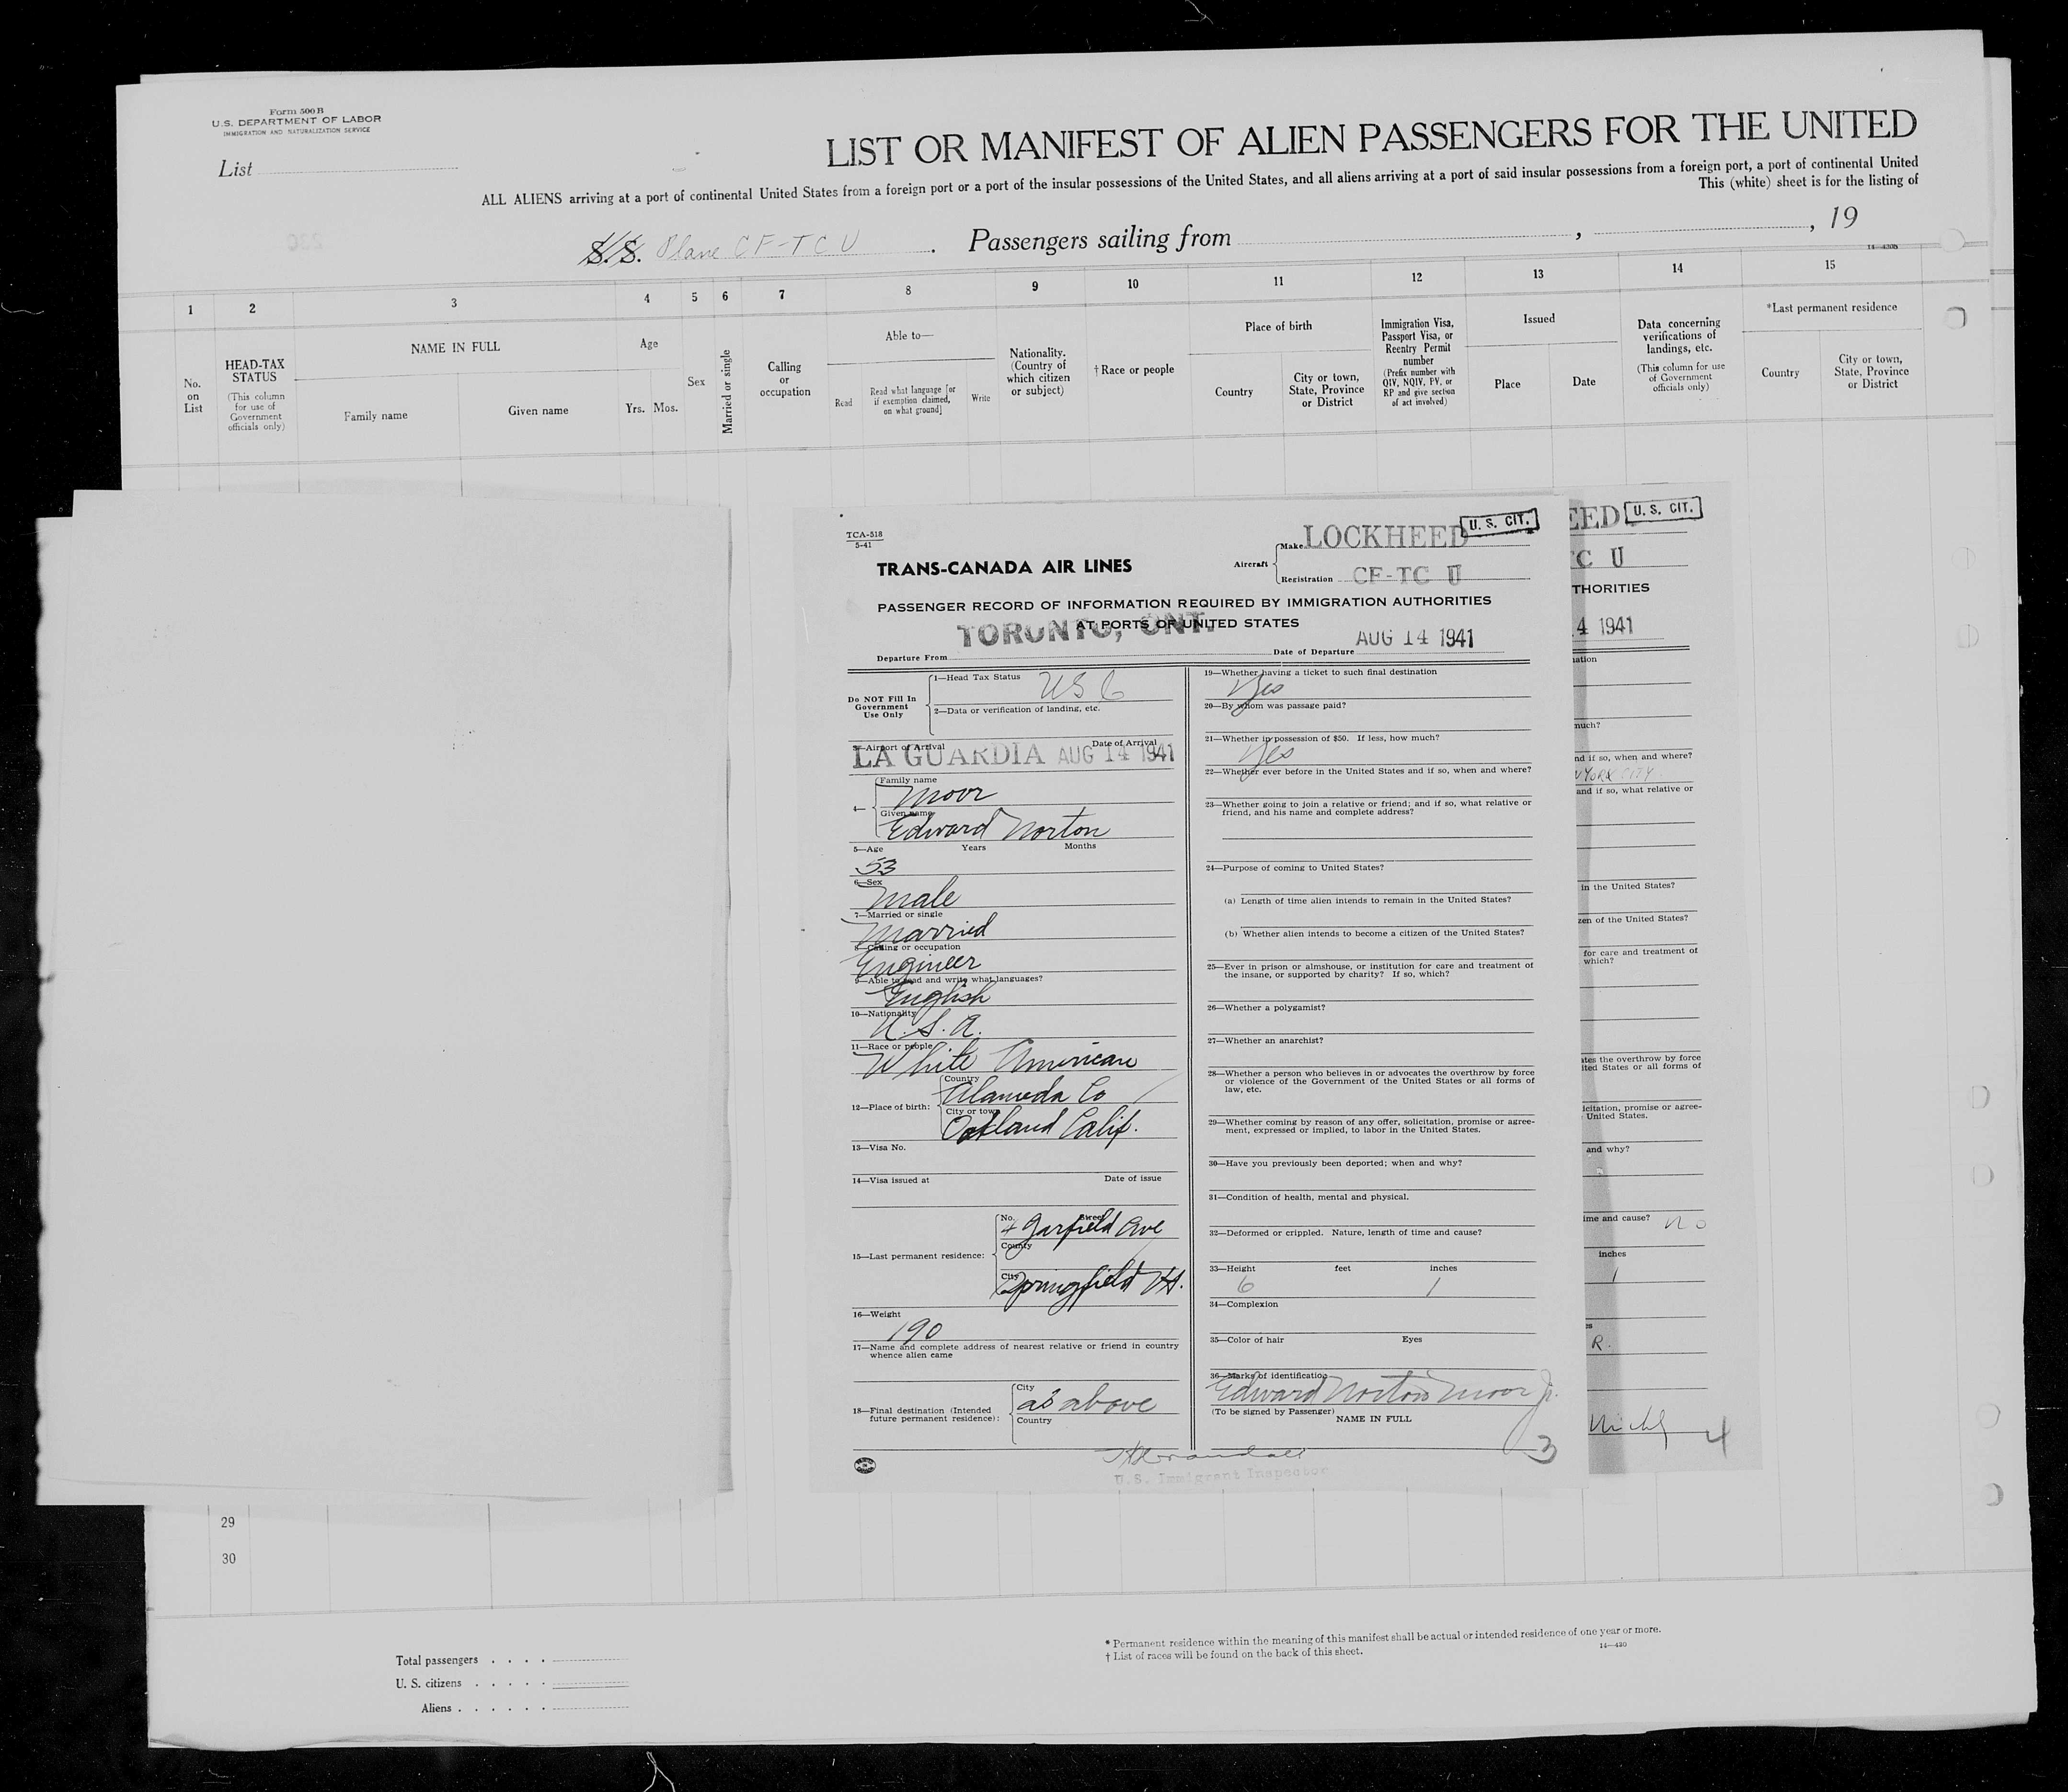 Form 500 B
U.S. DEPARTMENT OF LABOR
IMMIGRATION AND NATURALIZATION SERVICE
List
LIST OR MANIFEST OF ALIEN PASSENGERS FOR THE UNITED
ALL ALIENS arriving at a port of continental United States from a foreign port or a port of the insular possessions of the United States, and all aliens arriving at a port of said insular possessions from a foreign port, a port of continental United
This (white) sheet is for the listing of
S.S. Plane CF-TCU . Passengers sailing from , , 19
14-430B
1 2 3 4 5 6 7 8 9 10 11 12 13 14 15
No. on List
HEAD-TAX STATUS
(This column for use of Government officials only)
NAME IN FULL
Family name
Given name
Age
Yrs. Mos.
Sex
Married or single
Calling or occupation
Able to—
Read
Read what language [or if exemption claimed, on what ground]
Write
Nationality. (Country of which citizen or subject)
†Race or people
Place of birth
Country
City or town, State, Province or District
Immigration Visa, Passport Visa, or Reentry Permit number
(Prefix number with QIV, NQIV, PV, or RP and give section of act involved)
Issued
Place
Date
Data concerning verifications of landings, etc.
(This column for use of Government officials only)
*Last permanent residence
Country
City or town, State, Province or District
TCA-518
5-41
TRANS-CANADA AIR LINES
Aircraft
Make LOCKHEED
U. S. CIT.
Registration CF-TC U
PASSENGER RECORD OF INFORMATION REQUIRED BY IMMIGRATION AUTHORITIES
AT PORTS OF UNITED STATES
Departure From TORONTO, ONT.
Date of Departure AUG 14 1941
Do NOT Fill In Government Use Only
1—Head Tax Status USC
2—Data or verification of landing, etc.
3—Airport of Arrival Date of Arrival
LA GUARDIA AUG 14 1941
4—
Family name
Moor
Given name
Edward Norton
5—Age Years Months
53
6—Sex
Male
7—Married or single
Married
8—Calling or occupation
Engineer
9—Able to read and write what languages?
English
10—Nationality
U.S.A.
11—Race or people
White American
12—Place of birth:
Country
Alameda Co
City or town
Oakland Calif.
13—Visa No.
14—Visa issued at Date of issue
15—Last permanent residence:
No. Street
4 Garfield Ave
County
City
Springfield Vt.
16—Weight
190
17—Name and complete address of nearest relative or friend in country
whence alien came
18—Final destination (Intended
future permanent residence):
City
as above
Country
19—Whether having a ticket to such final destination
Yes
20—By whom was passage paid?
21—Whether in possession of $50. If less, how much?
Yes
22—Whether ever before in the United States and if so, when and where?
23—Whether going to join a relative or friend; and if so, what relative or
friend, and his name and complete address?
24—Purpose of coming to United States?
(a) Length of time alien intends to remain in the United States?
(b) Whether alien intends to become a citizen of the United States?
25—Ever in prison or almshouse, or institution for care and treatment of
the insane, or supported by charity? If so, which?
26—Whether a polygamist?
27—Whether an anarchist?
28—Whether a person who believes in or advocates the overthrow by force
or violence of the Government of the United States or all forms of
law, etc.
29—Whether coming by reason of any offer, solicitation, promise or agree-
ment, expressed or implied, to labor in the United States.
30—Have you previously been deported; when and why?
31—Condition of health, mental and physical.
32—Deformed or crippled. Nature, length of time and cause?
33—Height feet inches
6 1
34—Complexion
35—Color of hair Eyes
36—Marks of identification
Edward Norton Moor Jr.
(To be signed by Passenger) NAME IN FULL
3
U.S. Immigrant Inspector
EED
U. S. CIT.
TC U
THORITIES
4 1941
nation
much?
nd if so, when and where?
YORK CITY
and if so, what relative or
in the United States?
zen of the United States?
for care and treatment of
which?
ates the overthrow by force
ited States or all forms of
icitation, promise or agree-
United States.
and why?
ime and cause? NO
inches
1
es
R.
4
29
30
Total passengers . . . .
U. S. citizens . . . . .
Aliens . . . . . .
* Permanent residence within the meaning of this manifest shall be actual or intended residence of one year or more.
† List of races will be found on the back of this sheet.
14—430